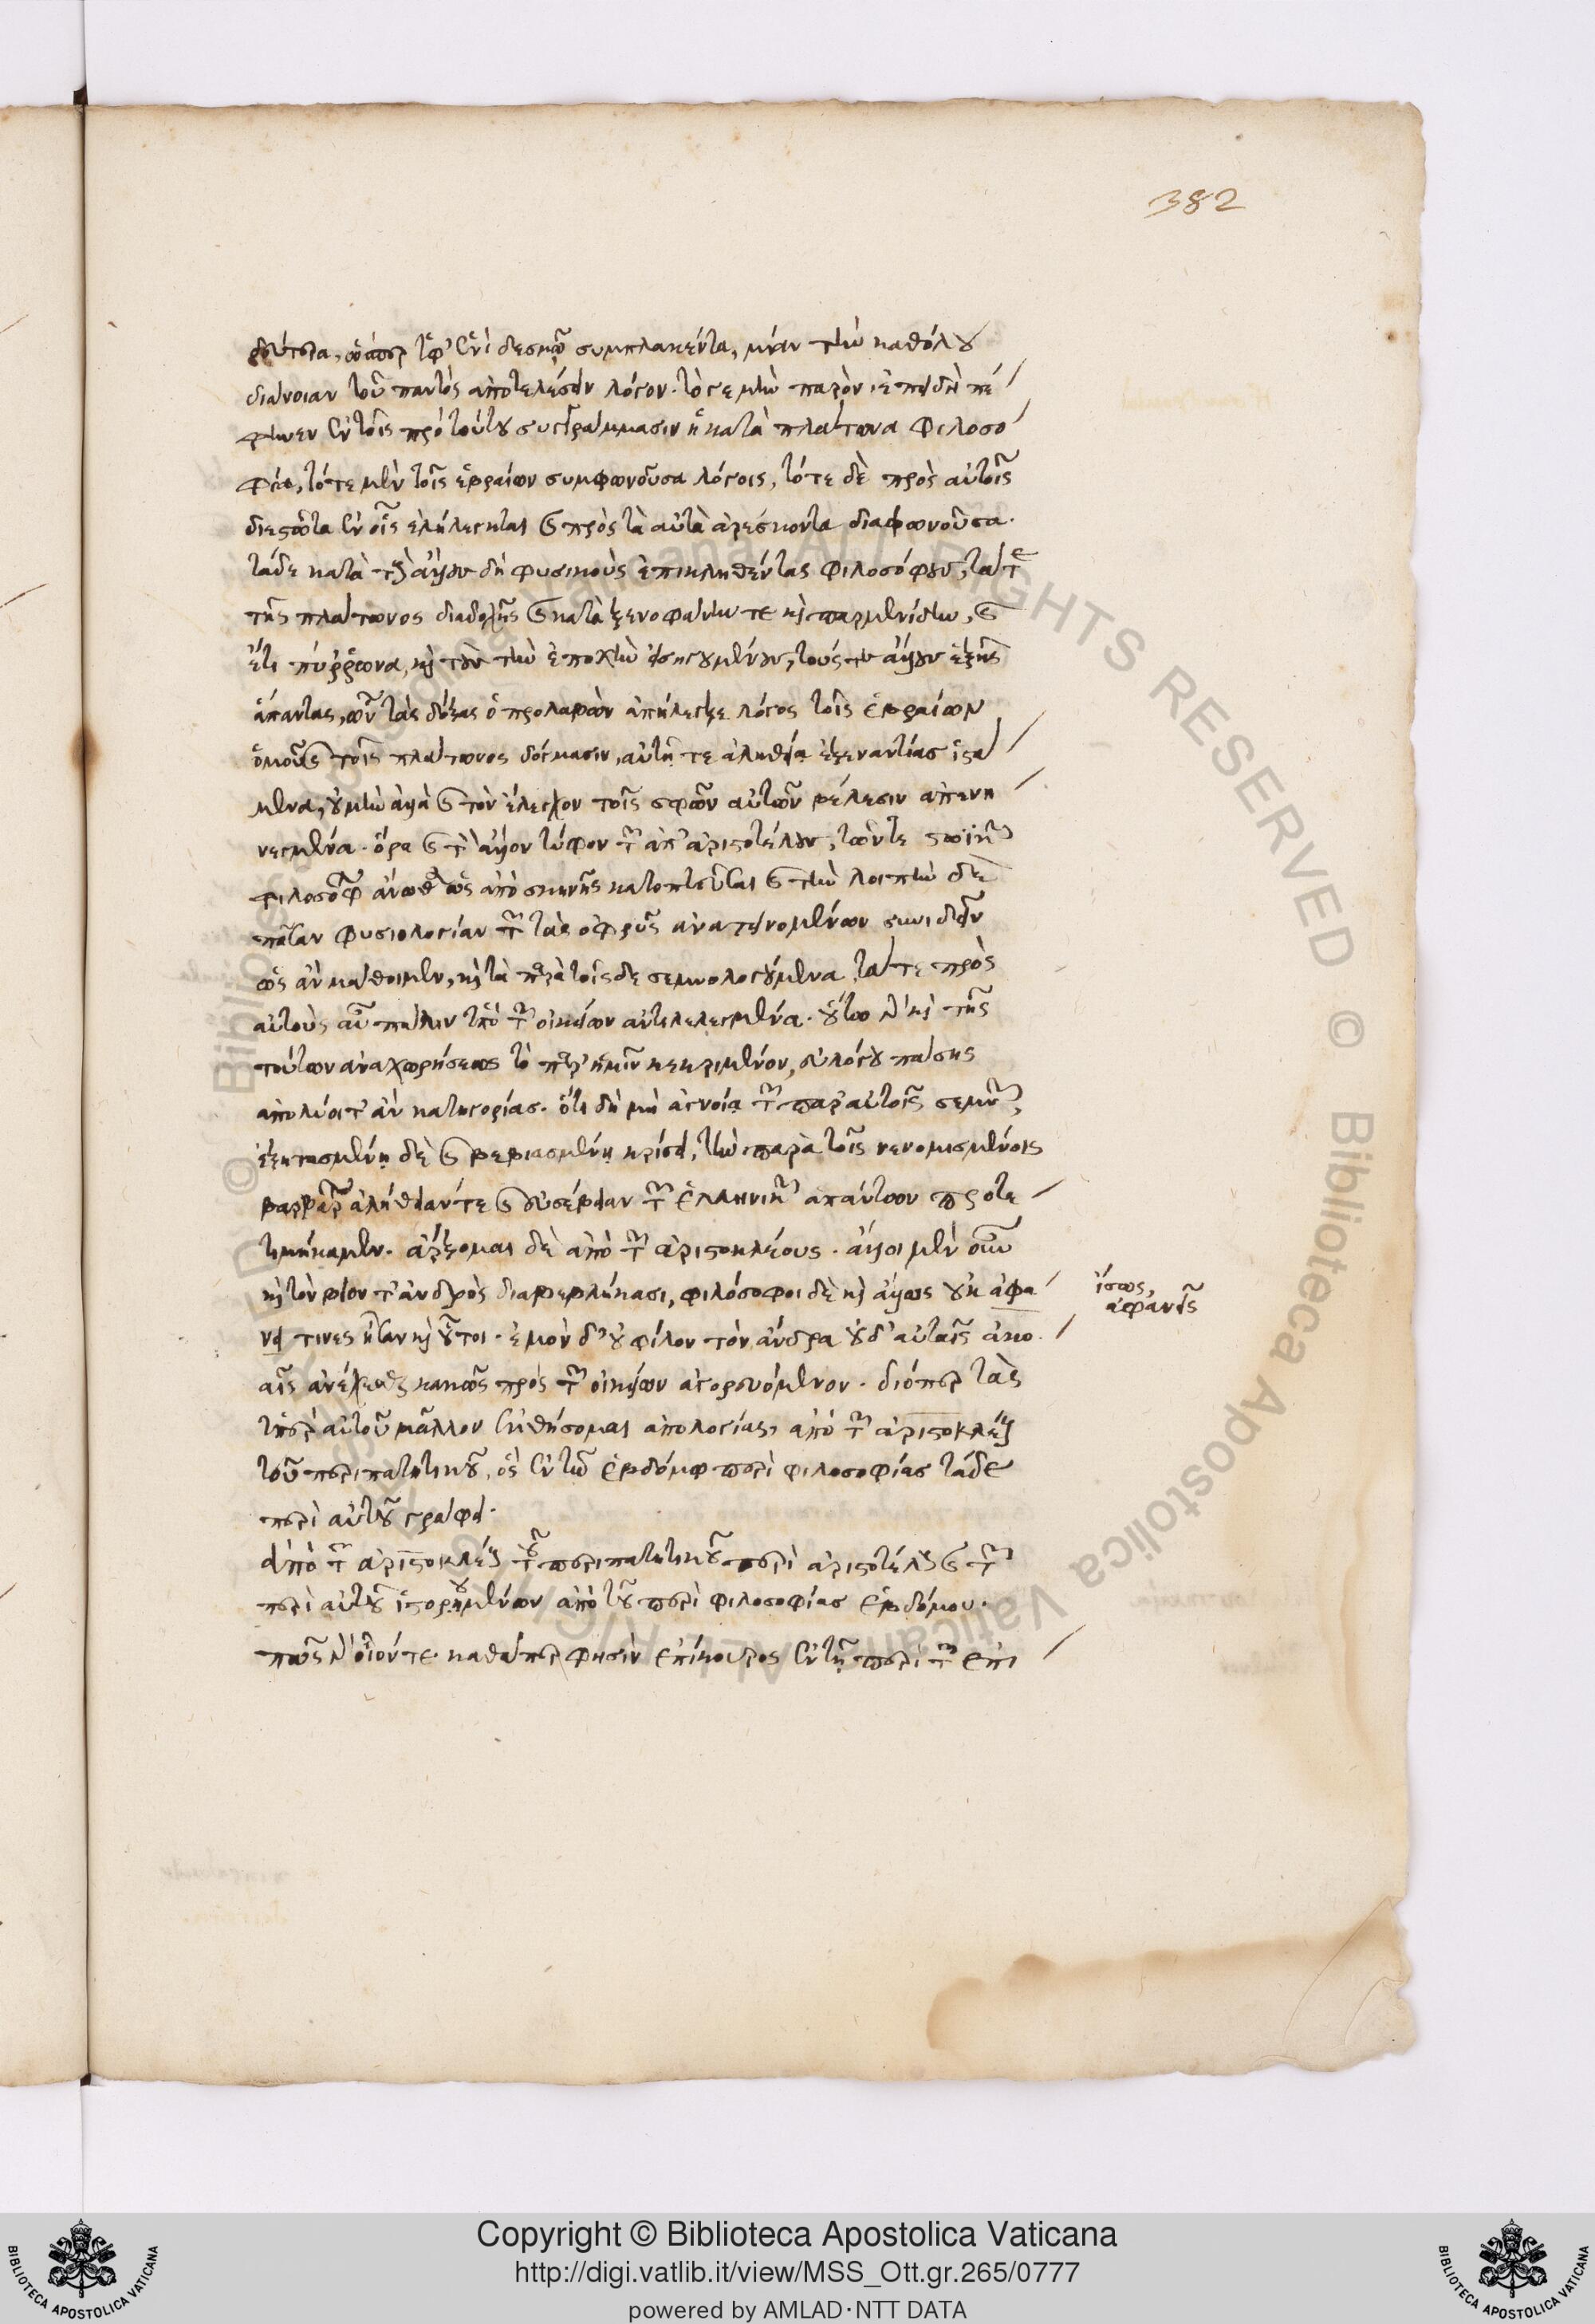 382
δεύτεια, ὥσπερ ὑφ' ἑνὶ δεσμῷ συμπλακέντα, μίαν τὴν καθόλου
διάνοιαν τοῦ παντὸς ἀποτελέσειν λόγον. τό γε μὴν παρὸν ἐπειδὴ πέ
φηνεν ἐν τοῖς πρὸ τούτου συγγράμμασιν ἡ κατὰ πλάτωνα φιλοσο
φία, τότε μὲν τοῖς ἑβραίων συμφωνοῦσα λόγοις, τότε δὲ πρὸς αὐτοῖς
διεστῶτα ἐν οἷς ἐλήλεγκται καὶ πρὸς τὰ αὐτὰ ἀρέσκοντα διαφωνοῦσα.
τάδε κατὰ τοὺς ἄλλους δὴ φυσικοὺς ἐπικληθέντας φιλοσόφους, τά τε
τῆς πλάτωνος διαδοχῆς καὶ κατὰ ξενοφάνην τε καὶ παρμενίδην, καὶ
ἔτι πύρρωνα, καὶ τοὺς τὴν ἐποχὴν εἰσηγουμένους, τούς τε ἄλλους ἑξῆς
ἅπαντας, ὧν τὰς δόξας ὁ προλαβὼν ἀπήλεγξε λόγος τοῖς ἑβραίων
ὁμοῦ καὶ τοῖς πλάτωνος δόγμασιν, αὐτῇ τε ἀληθείᾳ ἐξεναντίας ἱστά
μενα, οὐ μὴν ἀλλὰ καὶ τὸν ἔλεγχον τοῖς σφῶν αὐτῶν βέλεσιν ἀπενη
νεγμένα. ὅρα καὶ τὸν ἄλλον τύφον τῶν ἀπ' ἀριστοτέλους, τῶν τε στωϊκῶν
φιλοσόφων ἄνωθεν ὡς ἀπὸ σκηνῆς κατοπτεῦσαι καὶ τὴν λοιπὴν δὲ
πᾶσαν φυσιολογίαν τῶν τὰς ὀφρῦς ἀνατεινομένων συνιδεῖν
ὡς ἂν μάθοιμεν, καὶ τὰ παρὰ τοῖσδε σεμνολογούμενα, τά τε πρὸς
αὐτοὺς αὖ πάλιν ὑπὸ τῶν οἰκείων ἀντιλελεγμένα. οὕτω γὰρ καὶ τῆς
τούτων ἀναχωρήσεως τὸ παρ' ἡμῖν κεκριμένον, εὐλόγου πάσης
ἀπολύοιτ' ἂν κατηγορίας. ὅτι δὴ μὴ ἀγνοίᾳ τῶν παρ' αὐτοῖς σεμνῶν,
ἐξητασμένῃ δὲ καὶ βεβιασμένῃ κρίσει, τὴν παρὰ τοῖς νενομισμένοις
βαρβάροις ἀλήθειάν τε καὶ εὐσέβειαν τῶν ἑλληνικῶν ἁπάντων προτε
τιμήκαμεν. ἄρξομαι δὲ ἀπὸ τῶν ἀριστοκλέους. ἄλλοι μὲν οὖν
καὶ τὸν βίον τἀνδρὸς διαβεβλήκασι, φιλόσοφοι δὲ καὶ ἄλλως οὐκ ἀφα
νεῖ τινες ἦσαν καὶ οὗτοι. ἐμὸν δ' οὐ φίλον τὸν ἄνδρα οὐδ' αὐταῖς ἀκο
αῖς ἀνέχεσθαι κακῶς πρὸς τῶν οἰκείων ἀγορευόμενον. διόπερ τὰς
ὑπὲρ αὐτοῦ μᾶλλον ἐκθήσομαι ἀπολογίας, ἀπὸ τῶν ἀριστοκλέους
τοῦ περιπατητικοῦ, ὃς ἐν τῷ ἑβδόμῳ περὶ φιλοσοφίας τάδε
περὶ αὐτοῦ γράφει.
ἀπὸ τῶν ἀριστοκλέους τοῦ περιπατητικοῦ περὶ ἀριστοτέλους καὶ τῶν
περὶ αὐτοῦ ἱστορουμένων ἀπὸ τοῦ περὶ φιλοσοφίας ἑβδόμου.
πῶς γὰρ οἷόν τε καθάπερ φησὶν ἐπίκουρος ἐν τῇ περὶ τῶν ἐπι
ἴσως,
ἀφανεῖς
Copyright © Biblioteca Apostolica Vaticana
http://digi.vatlib.it/view/MSS_Ott.gr.265/0777
powered by AMLAD·NTT DATA